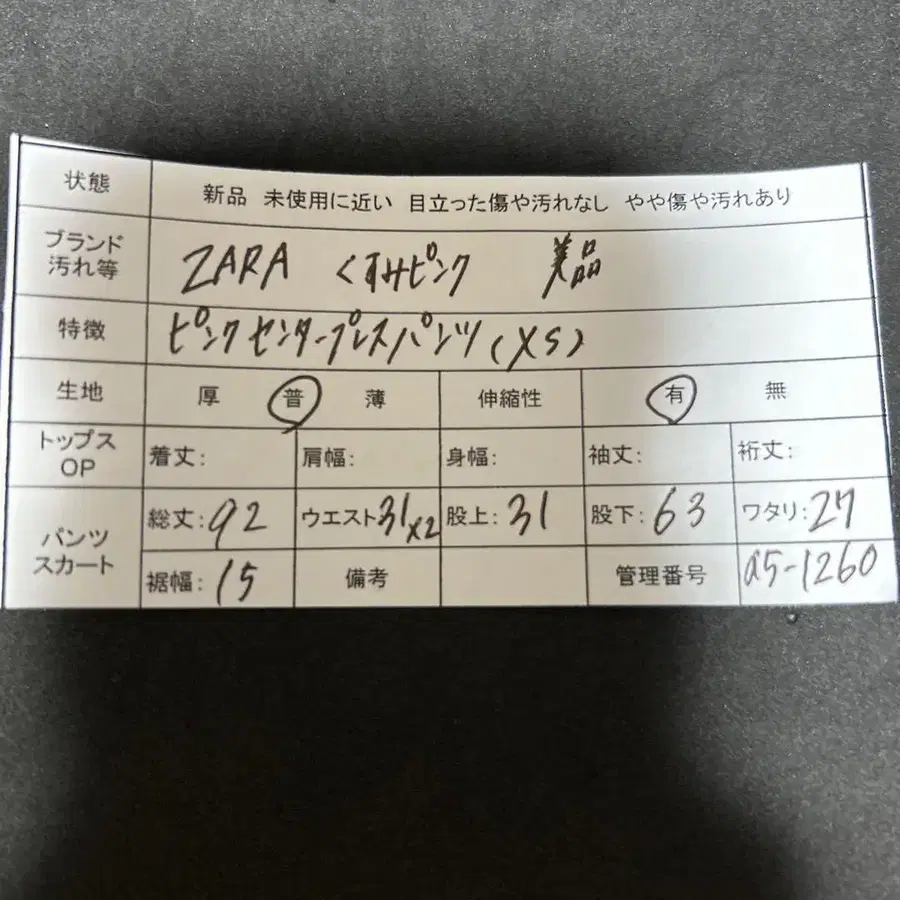 状態 新品 未使用に近い 目立った傷や汚れなし やや傷や汚れあり
ブランド
汚れ等 ZARA くすみピンク 美品
特徴 ピンクセンタープレスパンツ(XS)
生地 厚 普 薄 伸縮性 有 無
トップス
OP 着丈: 肩幅: 身幅: 袖丈: 裄丈:
パンツ
スカート 総丈:92 ウエスト31x2 股上:31 股下:63 ワタリ:27
裾幅:15 備考 管理番号 a5-1260